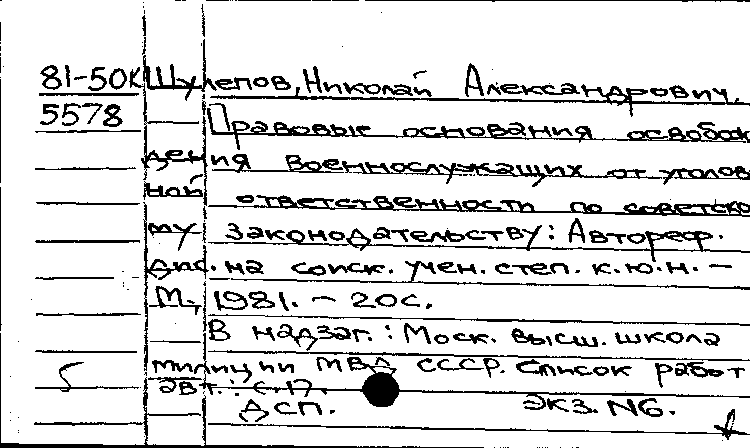 81-50К Шулепов, Николай Александрович.
5578 Правовые основания освобож
дения военнослужащих от уголов
ной ответственности по советско
му законодательству: Автореф.
дис. на соиск. учен. степ. к.ю.н. –
М., 1981. – 20с.
В надзаг.: Моск. высш. школа
5 милиции МВД СССР. Список работ
авт.: с.17.
ДСП. Экз. N6.